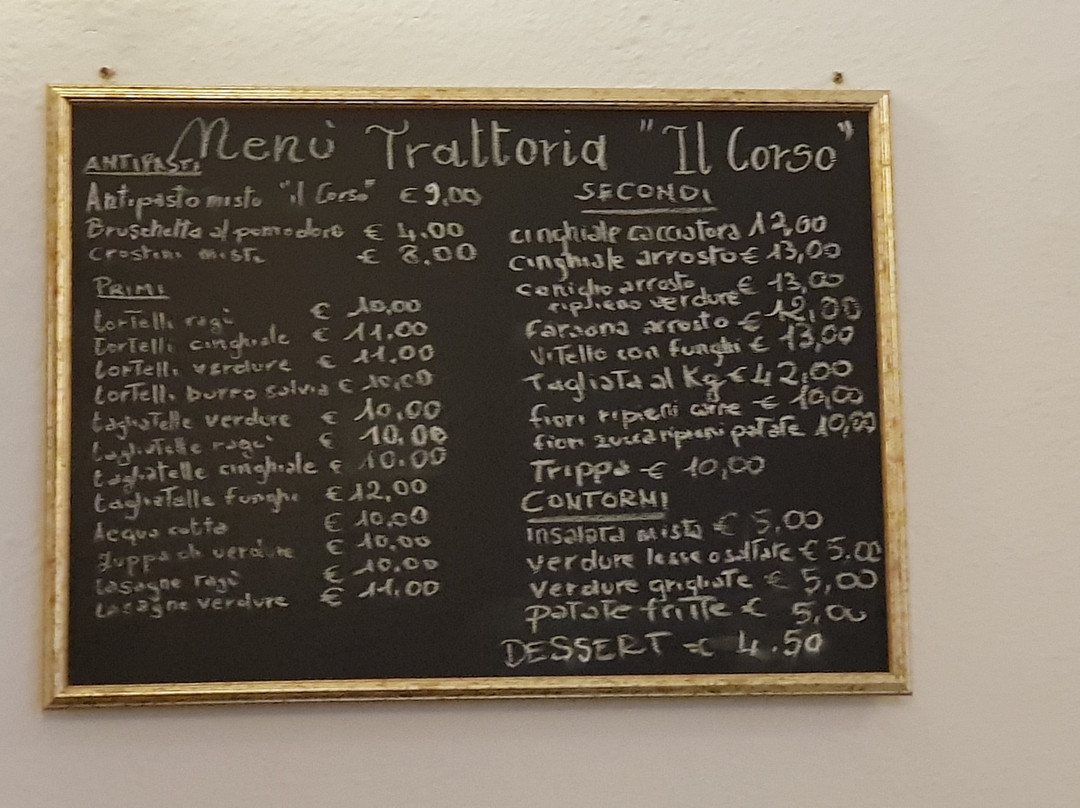 Menù Trattoria "Il Corso"
ANTIPASTI
Antipasto misto "il Corso" € 9,00
Bruschetta al pomodoro € 4.00
crostini misti € 8.00
PRIMI
tortelli ragù € 10,00
tortelli cinghiale € 11.00
tortelli verdure € 11.00
tortelli burro salvia € 10,00
tagliatelle verdure € 10,00
tagliatelle ragù € 10.00
tagliatelle cinghiale € 10.00
tagliatelle funghi € 12,00
Acqua cotta € 10,00
zuppa di verdure € 10,00
Lasagne ragù € 10.00
Lasagne verdure € 11.00
SECONDI
cinghiale cacciatora 12,00
cinghiale arrosto € 13,00
coniglio arrosto € 13,00
ripieno verdure
faraona arrosto € 12,00
Vitello con funghi € 13,00
Tagliata al Kg € 42,00
fiori ripieni carne € 10,00
fiori zucca ripieni patate 10,00
Trippa € 10,00
CONTORNI
insalata mista € 5.00
verdure lesse o saltate € 5.00
verdure grigliate € 5,00
patate fritte € 5,00
DESSERT € 4.50